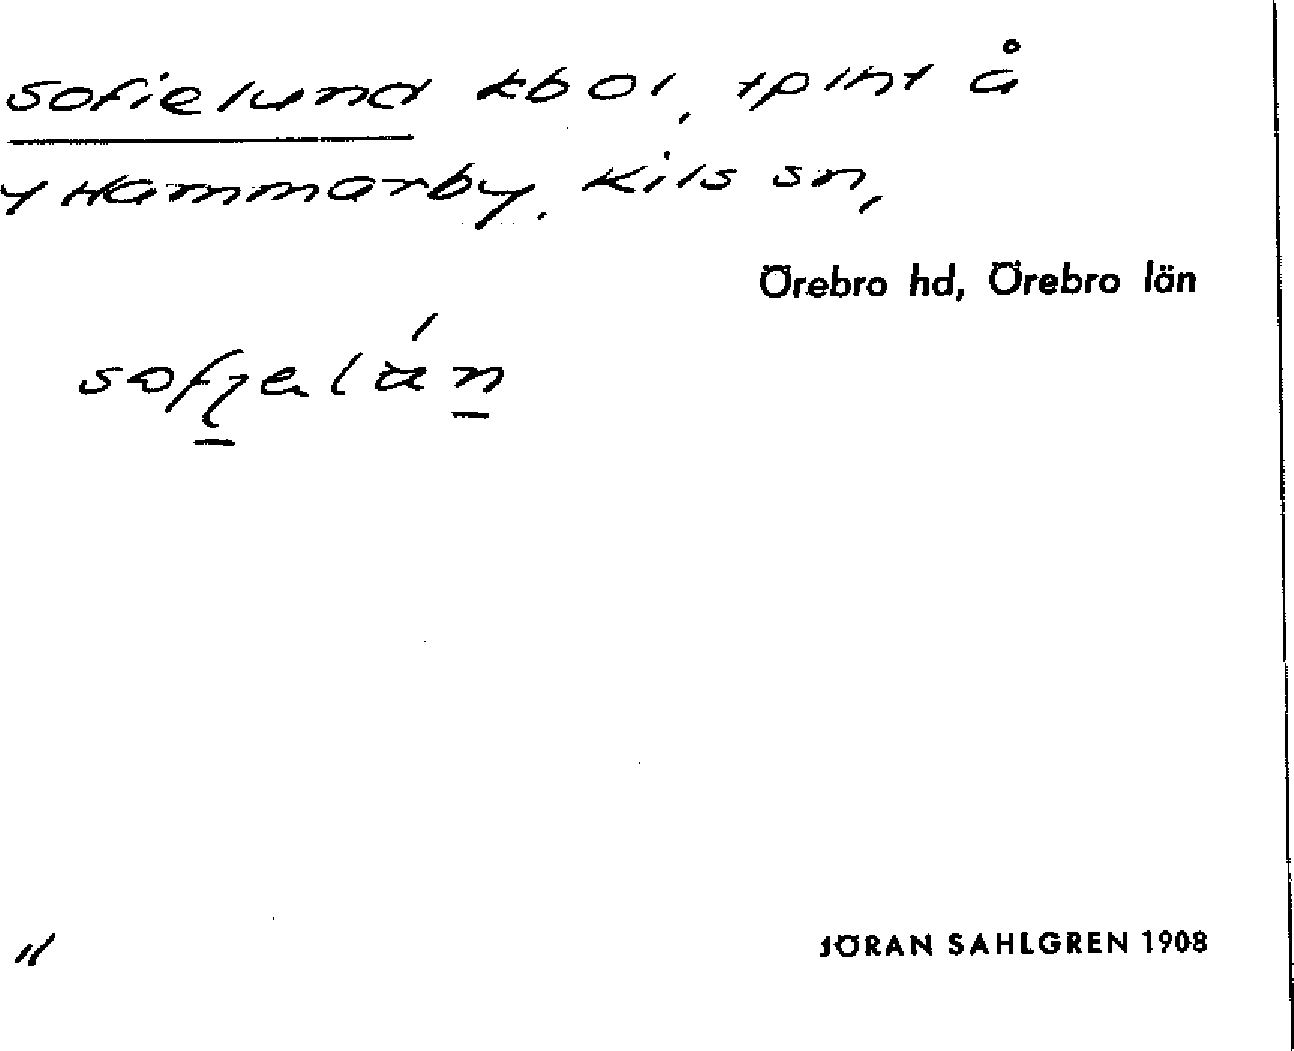 Sofielund kbol, tplht å
y Hammarby, Kils sn,
Örebro hd, Örebro län
JÖRAN SAHLGREN 1908